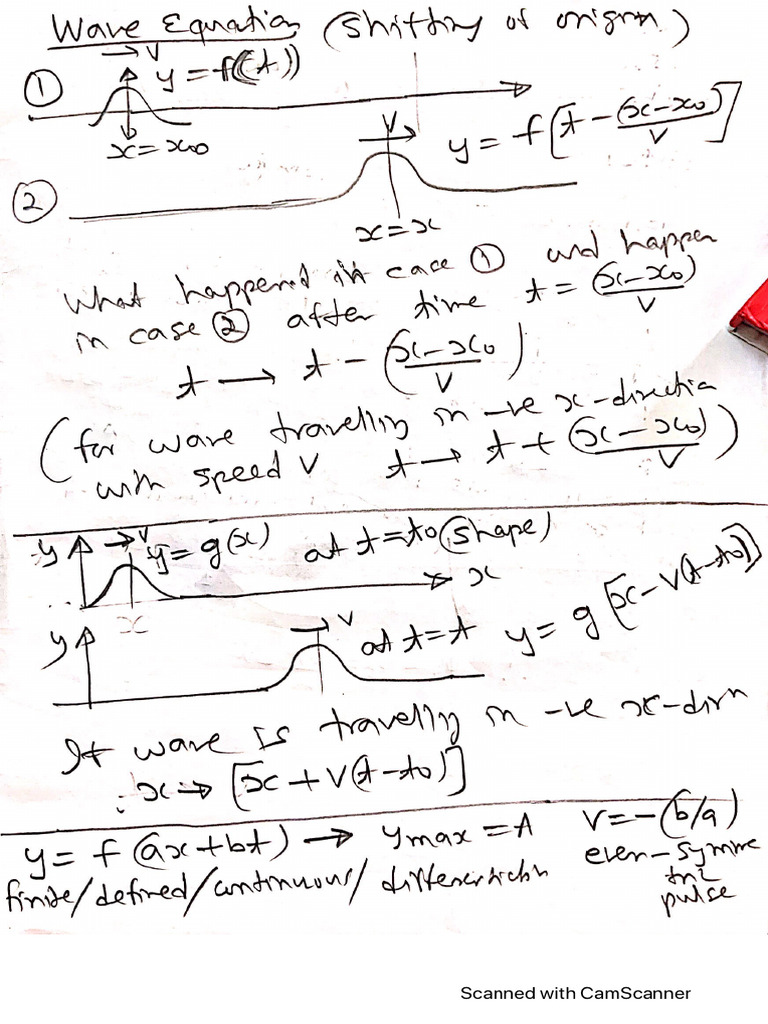 Wave Equation (Shifting of origin)
→ V
① y = f(t)
x = x0
V
y = f[t - (x-x0)/V]
②
x = x
What happened in case ① and happen
in case ② after time t = (x-x0)/V
t → t - (x-x0)/V
(for wave travelling in -ve x-direction
with speed V t → t + (x-x0)/V)
y → V y = g(x) at t=t0 (shape)
x
x
y V at t=t y = g[x-V(t-t0)]
If wave is travelly in -ve x-dirn
x → [x+V(t-t0)]
y = f(ax+bt) → ymax = A V = -(b/a)
finite/defined/continuous/
even-symme
tric
pulse
Scanned with CamScanner